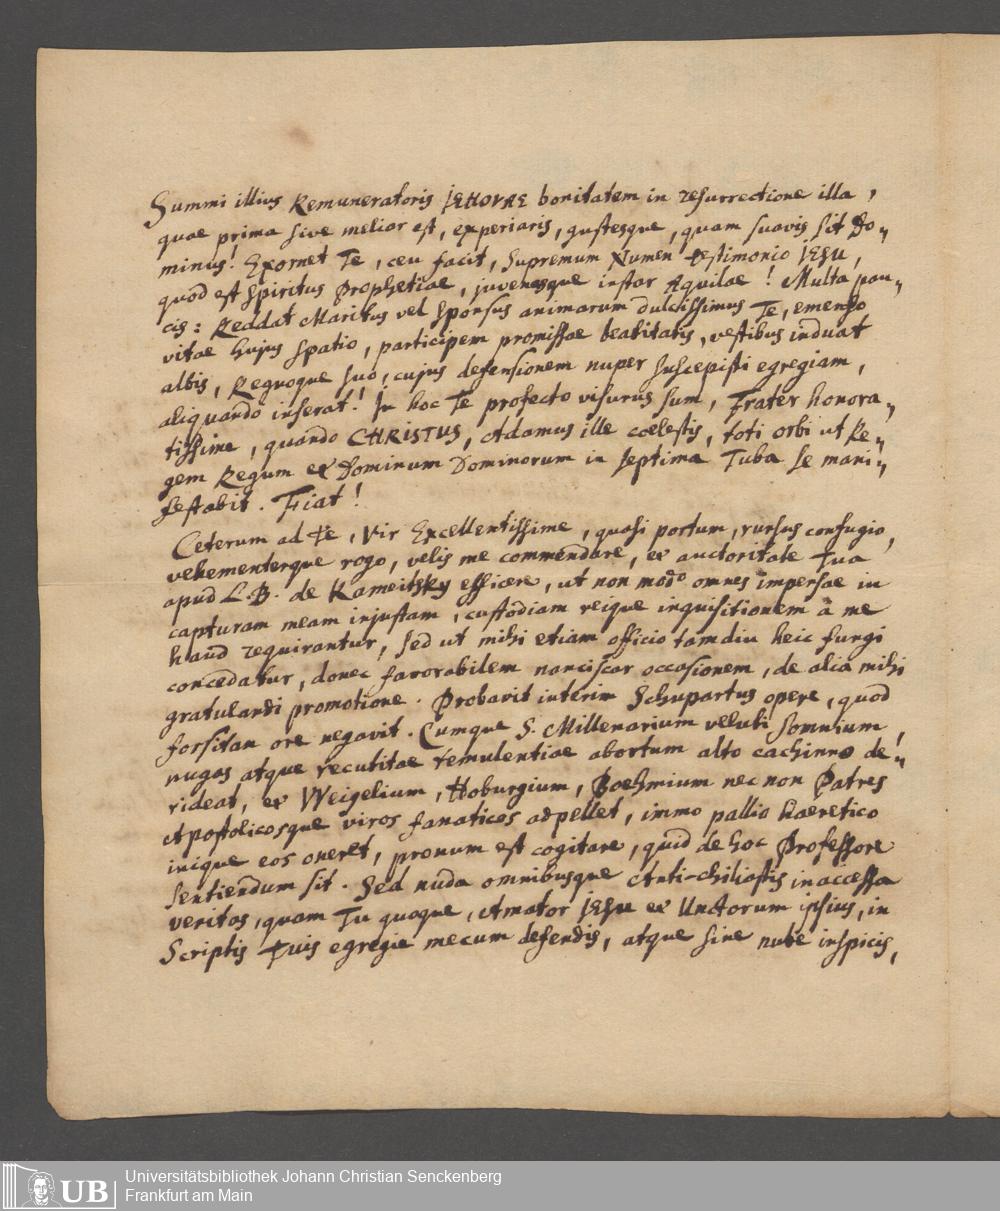 Summi illius Remuneratoris JEHOVAE bonitatem in resurrectione illa,
quae prima sive melior est, experiaris, gustesque, quam suavis sit Do„
minus! Exornet Te, ceu facit, Supremum Numen testimonio JESU,
quod est Spiritus Prophetiae, juvenesque instar Aquilae! Multa pau„
cis: Reddat Maritus vel Sponsus animarum dulcissimus Te, emenso
vitae hujus spatio, participem promissae beatitatis, vestibus induat
albis, Regnoque suo, cujus defensionem nuper suscepisti egregiam,
aliquando inserat! In hoc Te profecto visurus sum, Frater honora„
tissime, quando CHRISTUS, Adamus ille coelestis, toti orbi ut Re„
gem Regum et Dominum Dominorum in septima Tuba se mani„
festabit. Fiat!
Ceterum ad Te, Vir Excellentissime, quasi portum, rursus confugio,
vehementerque rogo, velis me commendare, et auctoritate Tua
apud L. B. de Kameitsky efficere, ut non modo omnes impensae in
capturam meam injustam, custodiam reique inquisitionem à me
haud requirantur, sed ut mihi etiam officio tamdiu heic fungi
concedatur, donec favorabilem nanciscar occasionem, de alia mihi
gratulandi promotione. Probavit interim Schupartus opere, quod
forsitan ore negavit. Cumque S. Millenarium veluti somnium,
nugas atque recutitae temulentiae abortum alto cachinno de„
rideat, et Weigelium, Hoburgium, Boehmium nec non Patres
Apostolicosque viros fanaticos adpellet, immo pallio haeretico
inique eos oneret, pronum est cogitare, quid de hoc Professore
sentiendum sit. Sed nuda omnibusque Anti-chiliastis inaccessa
veritas, quam Tu quoque, Amator JESU et Unctorum ipsius, in
Scriptis Tuis egregie mecum defendis, atque sine nube inspicis,
UB
Universitätsbibliothek Johann Christian Senckenberg
Frankfurt am Main